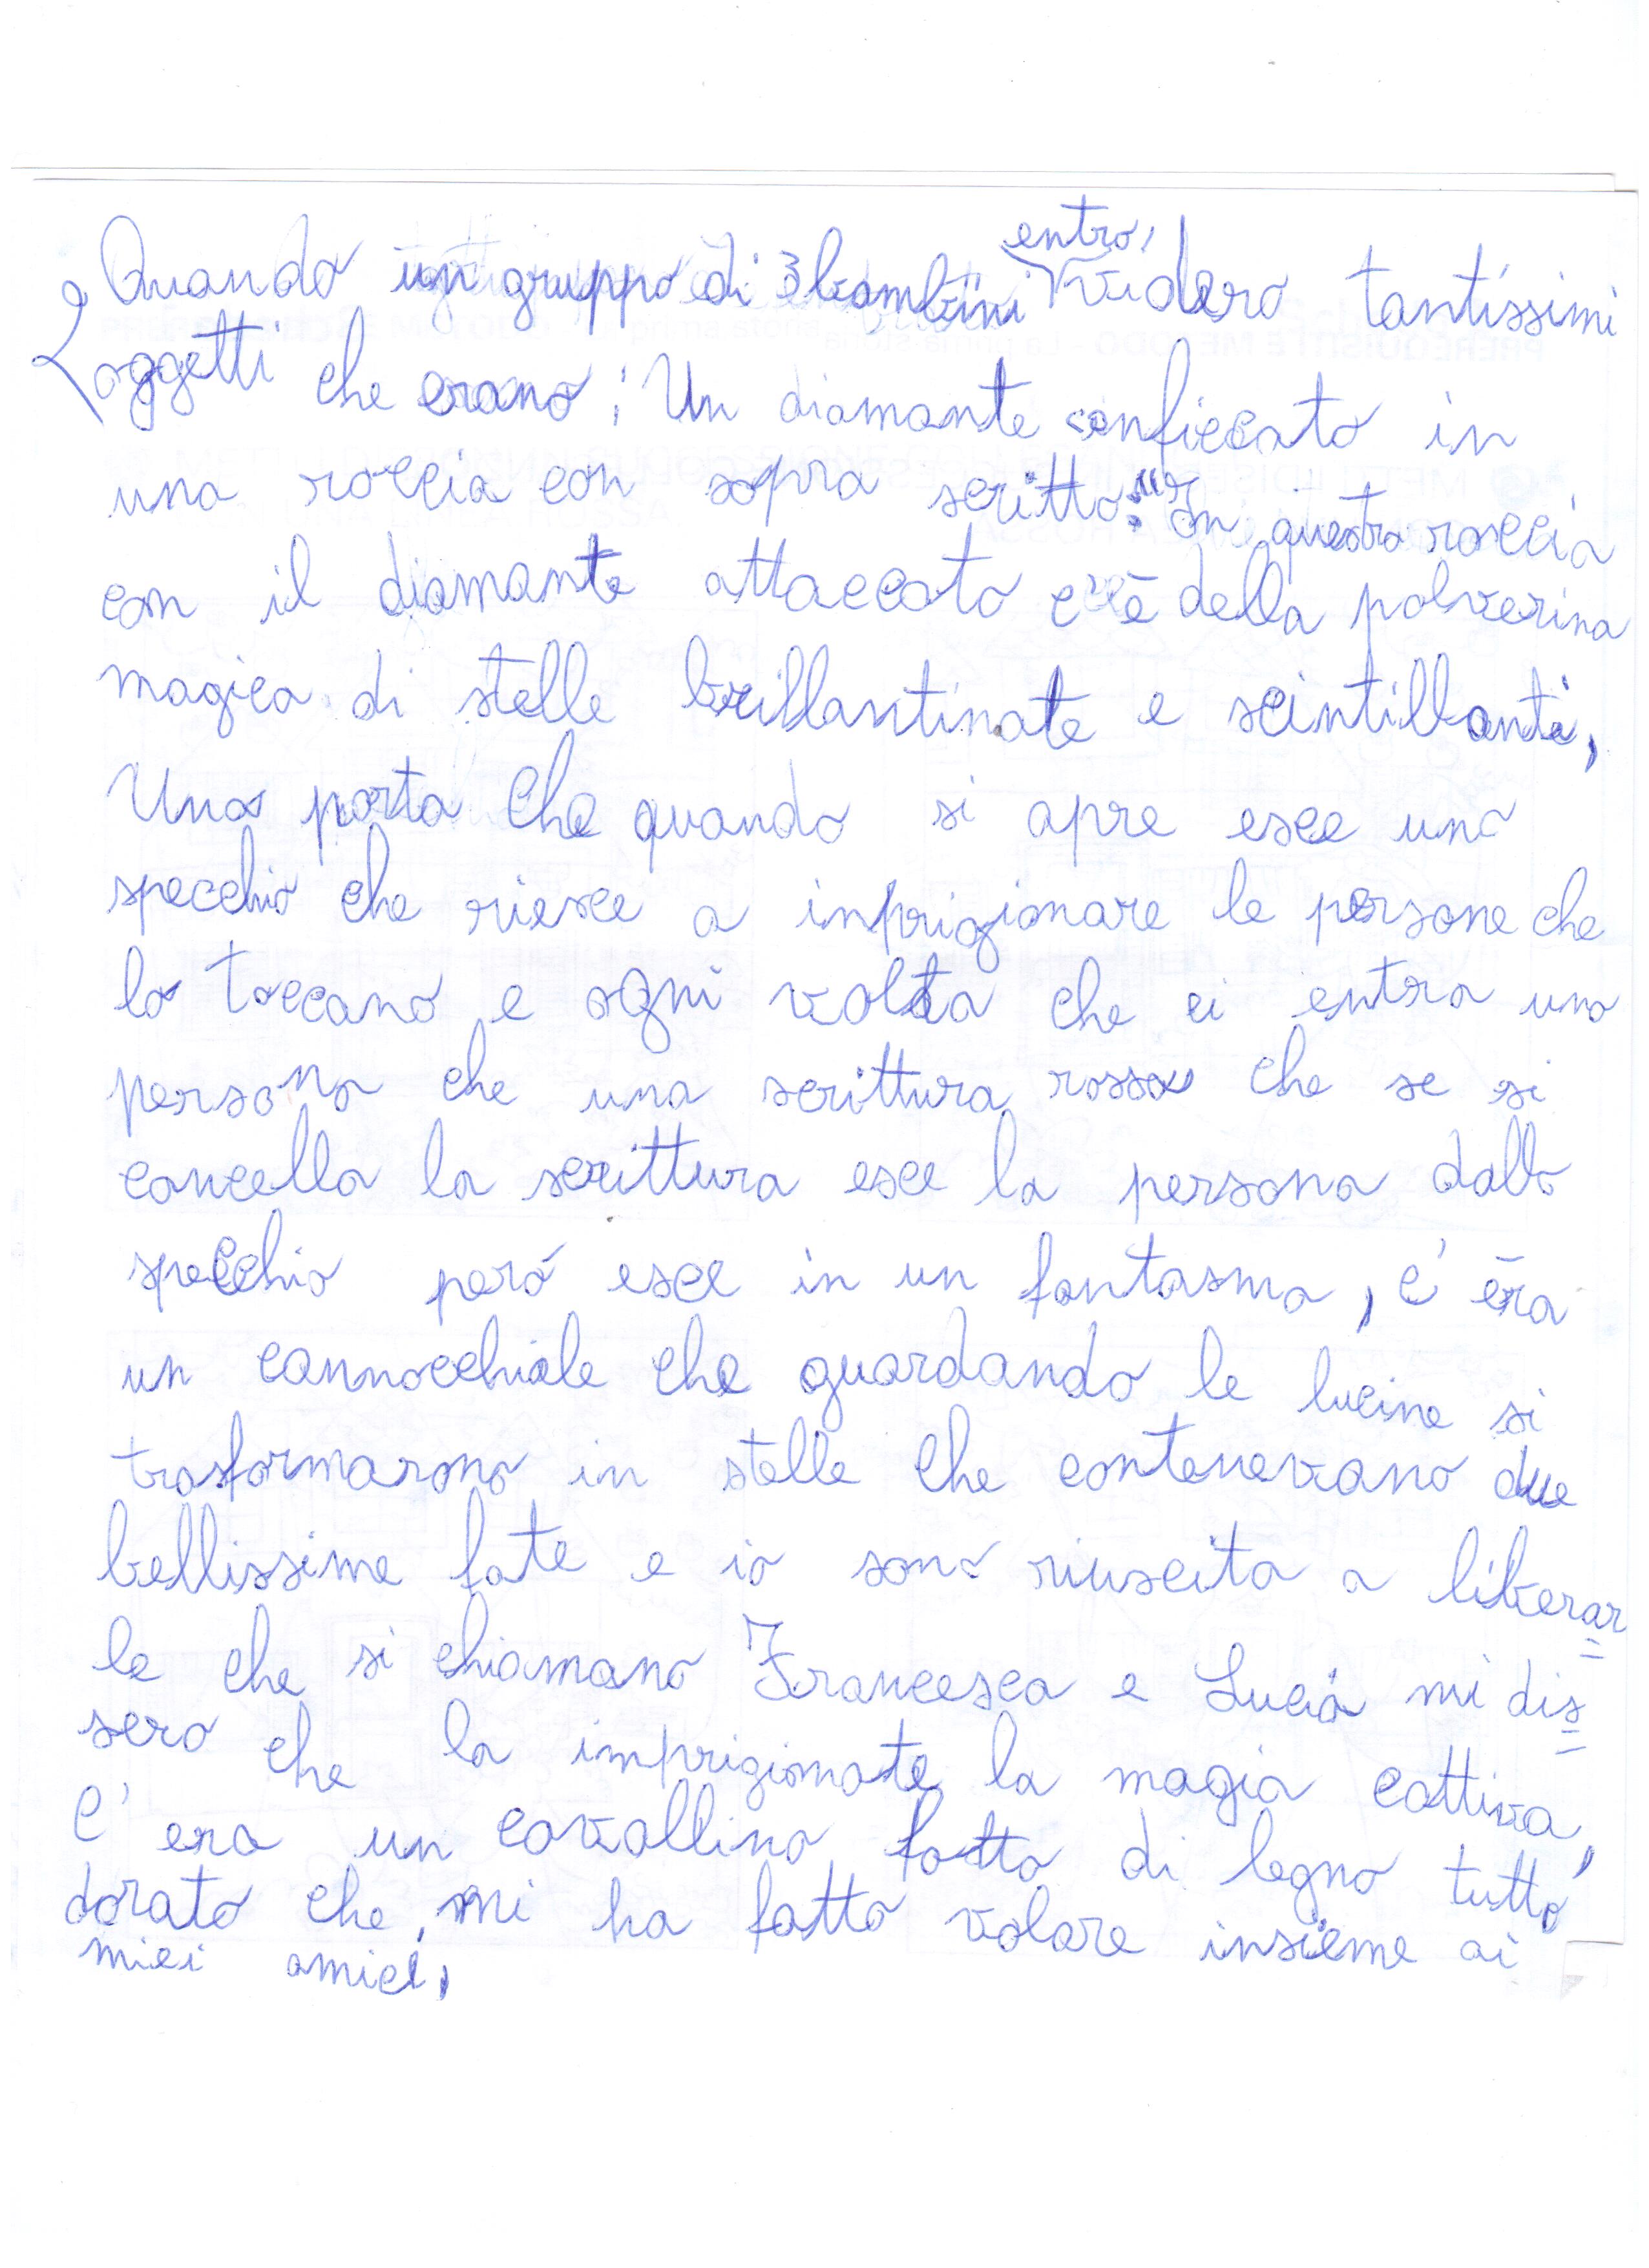 Quando un gruppo di 3 bambini entrò, videro tantissimi
oggetti che erano: Un diamante conficcato in
una roccia con sopra scritto: "In questa roccia
con il diamante attaccato c'è della polverina
magica di stelle brillantinate e scintillanti,
Una porta che quando si apre esce uno
specchio che riesce a inprigionare le persone che
lo toccano e ogni volta che ci entra una
persona che una scrittura rossa che se si
cancella la scrittura esce la persona dallo
specchio peró esce in un fantasma, c'era
un cannocchiale che guardando le lucine si
trasformarono in stelle che contenevano due
bellissime fate e io sono riuscita a liberar
le che si chiamano Francesca e Lucia mi dis
sero che la imprigionate la magia cattiva,
C'era un cavallino fatto di legno tutto
dorato che mi ha fatto volare insieme ai
miei amici,